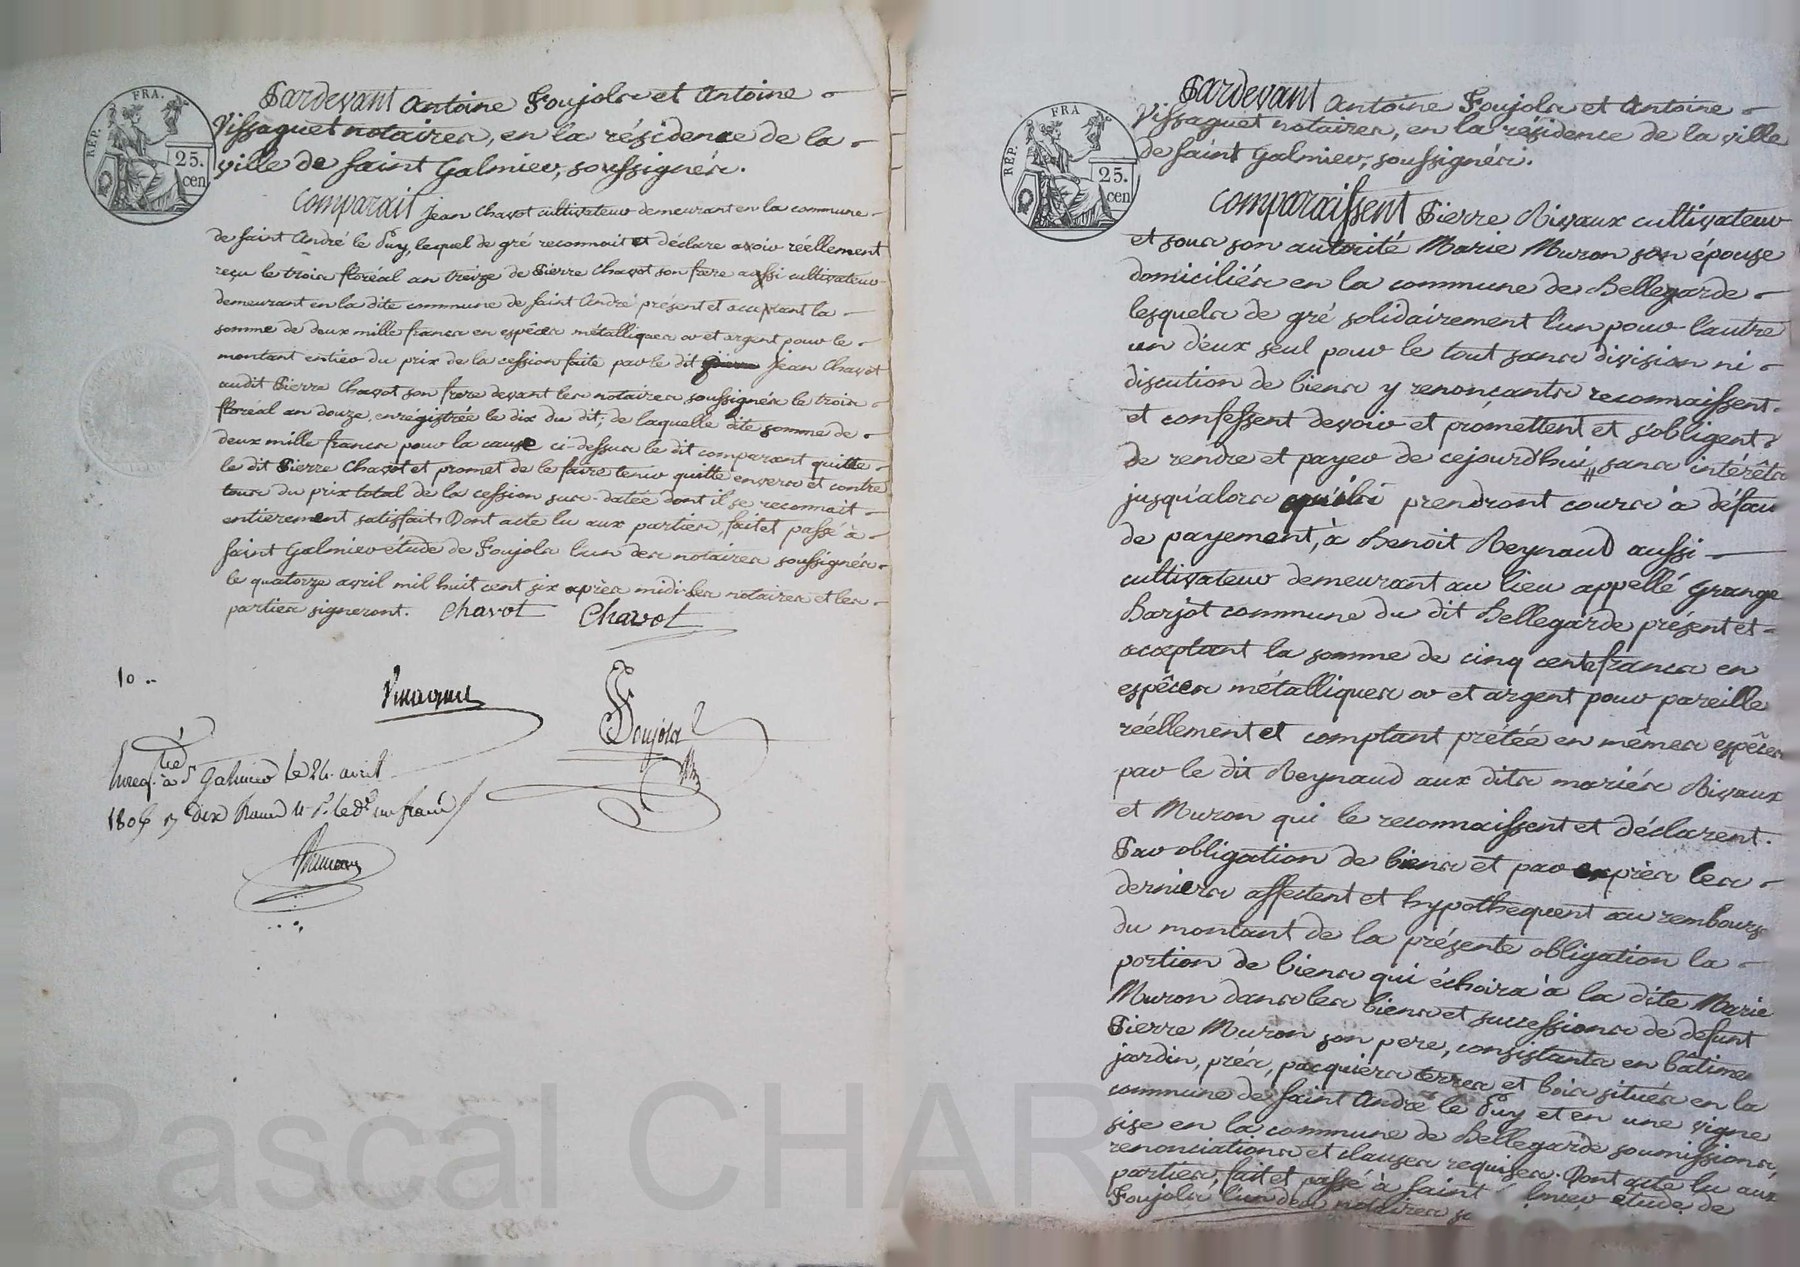 RÉP. FRA.
25.
cen
Pardevant Antoine Foujols et Antoine
Vissaguet notaires, en la résidence de la
ville de saint Galmier, soussignés.
Comparait Jean Chavot cultivateur demeurant en la commune
de saint André le Puy, lequel de gré reconnait et déclare avoir réellement
reçu le trois floréal an treize de Pierre Chavot son frere aussi cultivateur
demeurant en la dite commune de saint André présent et acceptant la
somme de deux mille francs en espêces métalliques or et argent pour le
montant entier du prix de la cession faite par le dit Jean Chavot
audit Pierre Chavot son frere devant les notaires soussignés le trois
floréal an douze, enrégistrée le dix du dit; de laquelle dite somme de
deux mille francs pour la cause ci-dessus le dit comparant quitte
le dit Pierre Chavot et promet de le faire tenir quitte envers et contre
tous du prix total de la cession sus-datée dont il se reconnait
entièrement satisfait. Dont acte lu aux parties, fait et passé à
saint Galmier étude de Foujols l'un des notaires soussignés
le quatorze avril mil huit cent six après midi les notaires et les
parties signeront. Chavot Chavot
10
Vissaguet
Foujols
à St Galmier le 24 avril
RÉP. FRA
25.
cen
Pardevant Antoine Foujols et Antoine
Vissaguet notaires, en la résidence de la ville
de saint Galmier, soussignés.
Comparaissent Pierre Rivaux cultivateur
et sous son autorité Marie Muron son épouse
domiciliés en la commune de Bellegarde
lesquels de gré solidairement l'un pour l'autre
un d'eux seul pour le tout sans division ni
discution de biens y renonçants reconnaissent
et confessent devoir et promettent et s'obligent
de rendre et payer de cejourdhui, sans intérêts
jusqu'alors qu'ils prendront cours à défau
de payement, à Benoit Reynaud aussi
cultivateur demeurant au lieu appellé Grange
Barjot commune du dit Bellegarde présent et
acceptant la somme de cinq cents francs en
espêces métalliques or et argent pour pareille
réellement et comptant prêtée en mêmes espêces
par le dit Reynaud aux dits mariés Rivaux
et Muron qui le reconnaissent et déclarent.
Par obligation de biens et par exprès les
derniers affectent et hypothequent au rembours
du montant de la présente obligation la
portion de biens qui échoira à la dite Marie
Muron dans les biens et successions de défunt
Pierre Muron son pere, consistants en bâtimen
jardin, prés, pacquiers terres et bois situés en la
commune de saint André le Puy et en une vigne
sise en la commune de Bellegarde soumissions,
renonciations et clauses requises. Dont acte lu aux
parties, fait et passé à saint lmier étude de
Foujols l'un des notaires so
Pascal CHAR